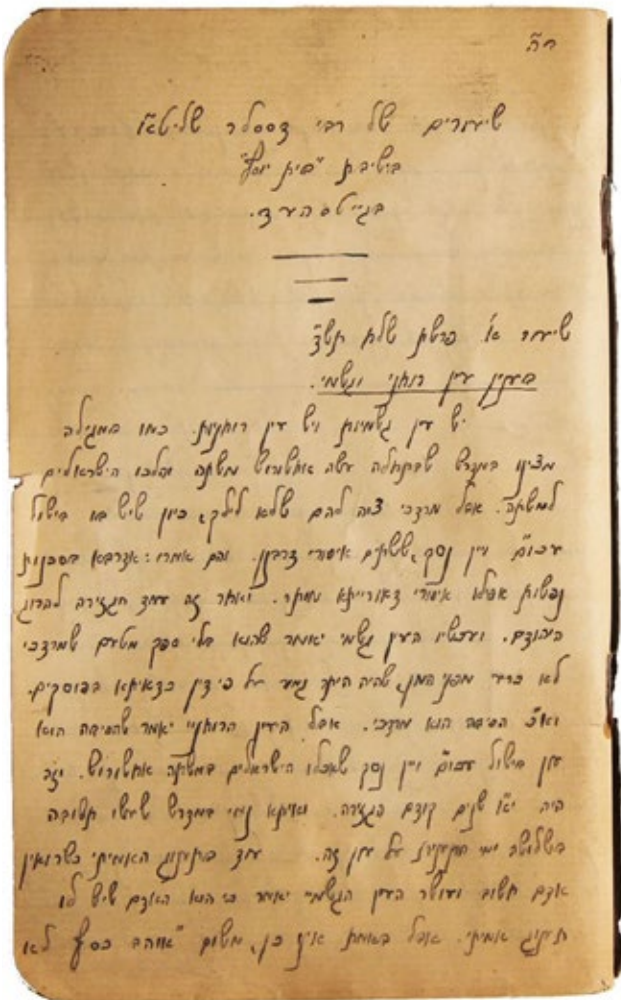 בה
שיעורים של רבי דססלר שליט"א
בישיבת "בית יוסף"
בגייטסהעד.
שיעור א' פרשת שלח תש"ג
בענין עין רוחני וגשמי.
יש עין גשמיות ויש עין רוחניות. כמו במגילה
מצינו במדרש שבתחלה עשה אחשורוש משתה והלכו הישראלים
למשתה. אבל מרדכי צוה להם שלא לילך, כיון שיש בו בישול
עכו"ם ויין נסך, ששתים איסורי דרבנן. והם אמרו: אדרבא בסכנות
נפשות אפילו איסורי דאורייתא מותר. ואחר זה עמד הגזירה להרוג
היהודים. ועכשיו העין גשמי יאמר שהוא בלי ספק מטעם שמרדכי
לא כרע מפני המן, שהיה היתר גמור על פי דין כדאיתא בפוסקים.
וא"כ הסיבה הוא מרדכי. אבל העין הרוחניי יאמר שהסיבה הוא
עון בישול עכו"ם ויין נסך שאכלו הישראלים במשתה אחשורוש. וזה
היה י"א שנים קודם הגזירה. ואיתא נמי במדרש שעשו תשובה
בשלושה ימי התענית על עון זה. עוד בתענוג האמיתי כשרואין
אדם חשוב ועושר העין הגשמיי יאמר כי הוא האדם שיש לו
תענוג אמיתי. אבל באמת אינו כן, משום "אוהב כסף לא